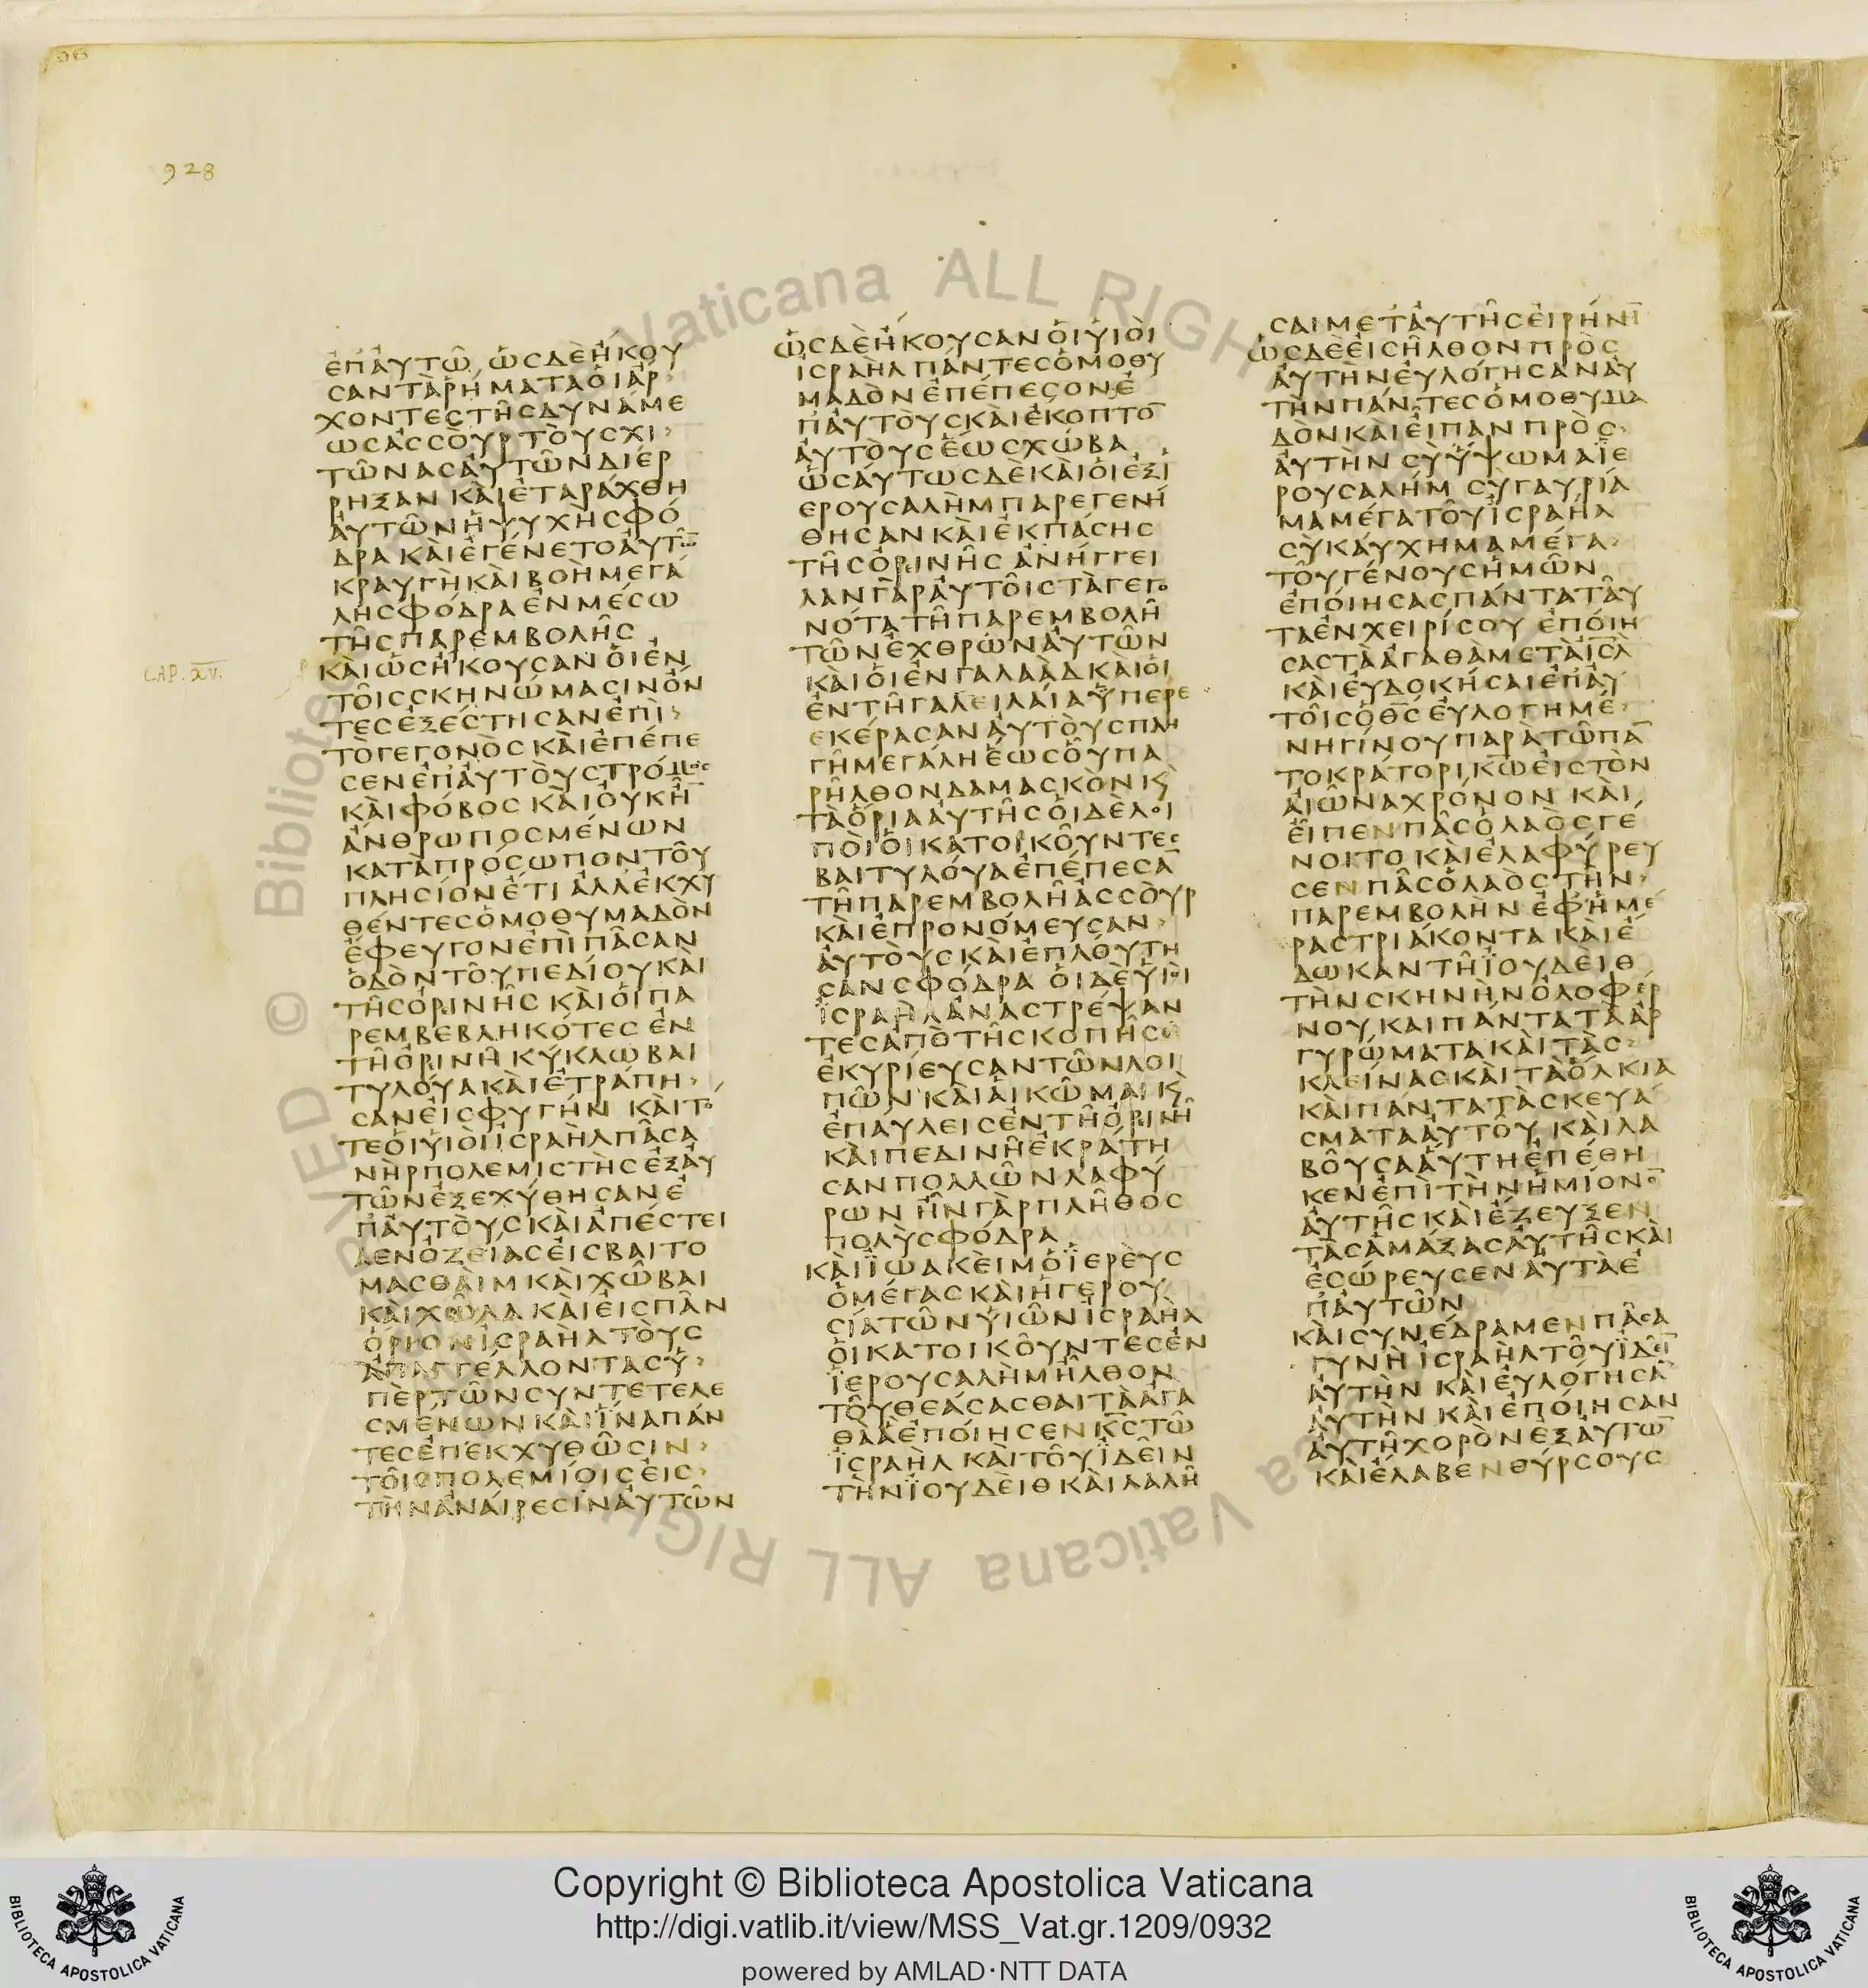 928
ἐπ᾽ἀυτῶ, ὡσδὲἤκου
σαντὰρήματαὁιάρ
χοντεστῆσδυνάμε
ωσἀσσὸυρτὸυσχι
τῶνασἀυτῶνδιέρ
ρηξανκὰιἐταράχθη
ἀυτῶνἡψυχὴσφό
δρακὰιἐγένετοἀυτῶ̅
κραυγὴκὰιβοὴμεγά
λησφόδραἐνμέσω
τῆσπαρεμβολῆσ
CAP. XV.
κὰιὡσἤκουσανὁιἐν
τοῖσσκηνώμασινὄν
τεσἐξέστησανἐπὶ
τὸγεγονὸσκὰιἐπέπε
σενἐπ᾽ἀυτὸυστρόμοσ
κὰιφόβοσκὰιὀυκῆ̅
ἄνθρωποσμένων
κατὰπρόσωποντοῦ
πλησίονἔτιἀλλ᾽ἐκχυ
θέντεσὁμοθυμαδὸν
ἔφευγονἐπὶπᾶσαν
ὁδὸντοῦπεδίουκὰι
τῆσὀρινῆσκὰιὁιπα
ρεμβεβληκότεσἐν
τῆὀρινῆκύκλωβαι
τυλούακὰιἐτράπη
σανἐισφυγήν κὰιτό
τεὁιὑιὸιἰσραὴλπᾶσα
νὴρπολεμιστὴσἐξἀυ
τῶνἐξεχύθησανἐ
π᾽ἀυτὸυσκὰιἀπέστει
λενὀζείασἐισβαιτο
μασθὰιμκὰιχῶβαι
κὰιχῶλακὰιἐισπᾶν
ὅριονἰσραὴλτὸυσ
ἀπαγγέλλοντασὑ
πὲρτῶνσυντετελε
σμένωνκὰιἵναπάν
τεσἐπεκχυθῶσιν
τοῖσπολεμίοισἐισ
τὴνἀνάιρεσινἀυτῶν
ὡσδὲἤκουσανὁιὑιὸι
ἰσραὴλπάντεσὁμοθυ
μαδὸνἐπέπεσονἐ
π᾽ἀυτὸυσκὰιἔκοπτο̅
ἀυτὸυσἕωσχώβα
ὡσάυτωσδὲκὰιὁιἐξἱ
ερουσαλὴμπαρεγενή
θησανκὰιἐκπάσησ
τῆσὀρινῆσἀνήγγει
λανγὰρἀυτοῖστὰγεγο
νότατῆπαρεμβολῆ
τῶνἐχθρώνἀυτῶν
κὰιὁιἐνγαλαὰδκὰιὁι
ἐντῆγαλειλάιαὑπερε
εκέρασανἀυτὸυσπλη
γῆμεγάληἕωσὁῦπα
ρῆλθονδαμασκὸνκ̀
τὰὅριαἀυτῆσὁιδὲλοι
πὸιὁικατοικοῦντεσ
βαιτυλούαἐπέπεσα̅
τῆπαρεμβολῆἀσσὸυρ
κὰιἐπρονόμευσαν
ἀυτὸυσκὰιἐπλούτη
σανσφόδρα ὁιδὲὑιὸι
ἰσραὴλἀναστρέψαν
τεσἀπὸτῆσκοπῆσ
ἐκυρίευσαντῶνλοι
πῶνκὰιἁικῶμαικ̀
ἐπάυλεισἐντῆὀρινῆ
κὰιπεδινῆἐκράτη
σανπολλῶνλαφύ
ρωνἦνγὰρπλῆθοσ
πολὺσφόδρα
κὰιϊωακὲιμὁϊερὲυσ
ὁμέγασκὰιἡγερου
σίατῶνὑιῶνἰσραὴλ
ὁικατοικοῦντεσἐν
ϊερουσαλὴμἦλθον
τοῦθεάσασθαιτὰἀγα
θὰἃἐπόιησενκ̅σ̅τῶ
ἰσραὴλκὰιτοῦϊδεῖν
τὴνϊουδὲιθκὰιλαλῆ
σαιμετ᾽ἀυτῆσἐιρήνη̅
ὡσδὲἐισῆλθονπρὸσ
ἀυτὴνἐυλόγησανἀυ
τὴνπάντεσὁμοθυμα
δὸνκὰιἐῖπανπρὸσ
ἀυτὴνσὺὕψωμαϊε
ρουσαλήμ σὺγαυρία
μαμέγατοῦἰσραὴλ
σὺκάυχημαμέγα
τοῦγένουσἡμῶν
ἐπόιησασπάνταταῦ
ταἐνχειρίσου ἐπόιη
σαστὰἀγαθὰμετὰι̅σ̅λ̅
κὰιἐυδοκήσαιἐπ᾽ἀυ
τοῖσὁθ̅σ̅ἐυλογημέ
νηγίνουπαρὰτῶπα̅
τοκράτορικ̅ω̅ἐιστὸν
ἀιῶναχρόνον κὰι
ἐῖπενπᾶσὁλαὸσγέ
νοιτοκὰιἐλαφύρευ
σενπᾶσὁλαὸστὴν
παρεμβολὴνἐφ᾽ἡμέ
ραστριάκοντακὰιἔ
δωκαντῆϊουδὲιθ
τὴνσκηνὴνὀλοφέρ
νουκαιπάντατὰἀρ
γυρώματακὰιτὰσ
κλείνασκὰιτὰὁλκια
κὰιπάντατὰσκευά
σματαἀυτοῦ κὰιλα
βοῦσαἀυτηἐπέθη
κενἐπὶτὴνἡμίονο̅
ἀυτῆσκὰιἔζευξεν
τὰσἁμάξασἀυτῆσκὰι
ἐσώρευσενἀυτὰἐ
π᾽ἀυτῶν
κὰισυνέδραμενπᾶσα
γυνὴἰσραὴλτοῦϊδεῖ̅
ἀυτὴνκὰιἐυλόγησα̅
ἀυτὴνκὰιἐπόιησαν
ἀυτῆχορὸνἐξἀυτῶ̅
κὰιἔλαβενθύρσουσ
Copyright © Biblioteca Apostolica Vaticana
http://digi.vatlib.it/view/MSS_Vat.gr.1209/0932
powered by AMLAD·NTT DATA
BIBLIOTECA APOSTOLICA VATICANA
BIBLIOTECA APOSTOLICA VATICANA